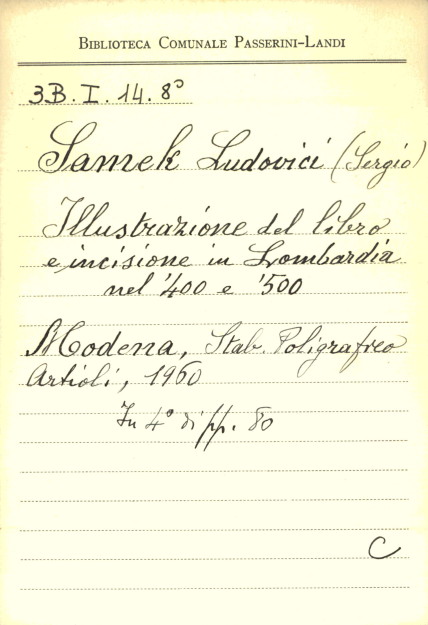 BIBLIOTECA COMUNALE PASSERINI-LANDI
3.B.I.14.8°
Samek Ludovici (Sergio)
Illustrazione del libro
e incisione in Lombardia
nel '400 e '500
Modena, Stab. Poligrafico
Artioli, 1960
In 4° di pp. 80
C